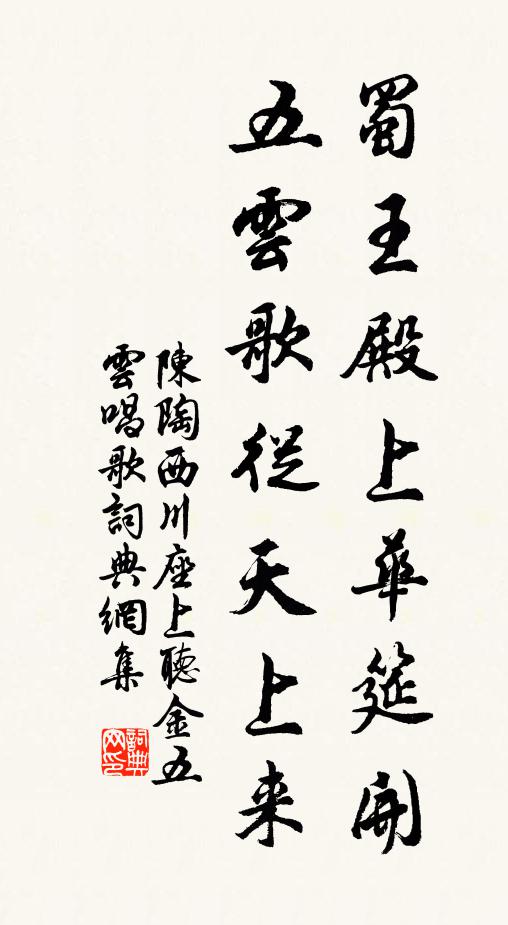 蜀王殿上華筵開
五雲歌從天上来
陳陶西川座上聽金五
雲唱歌詞典網集
詞典
网印